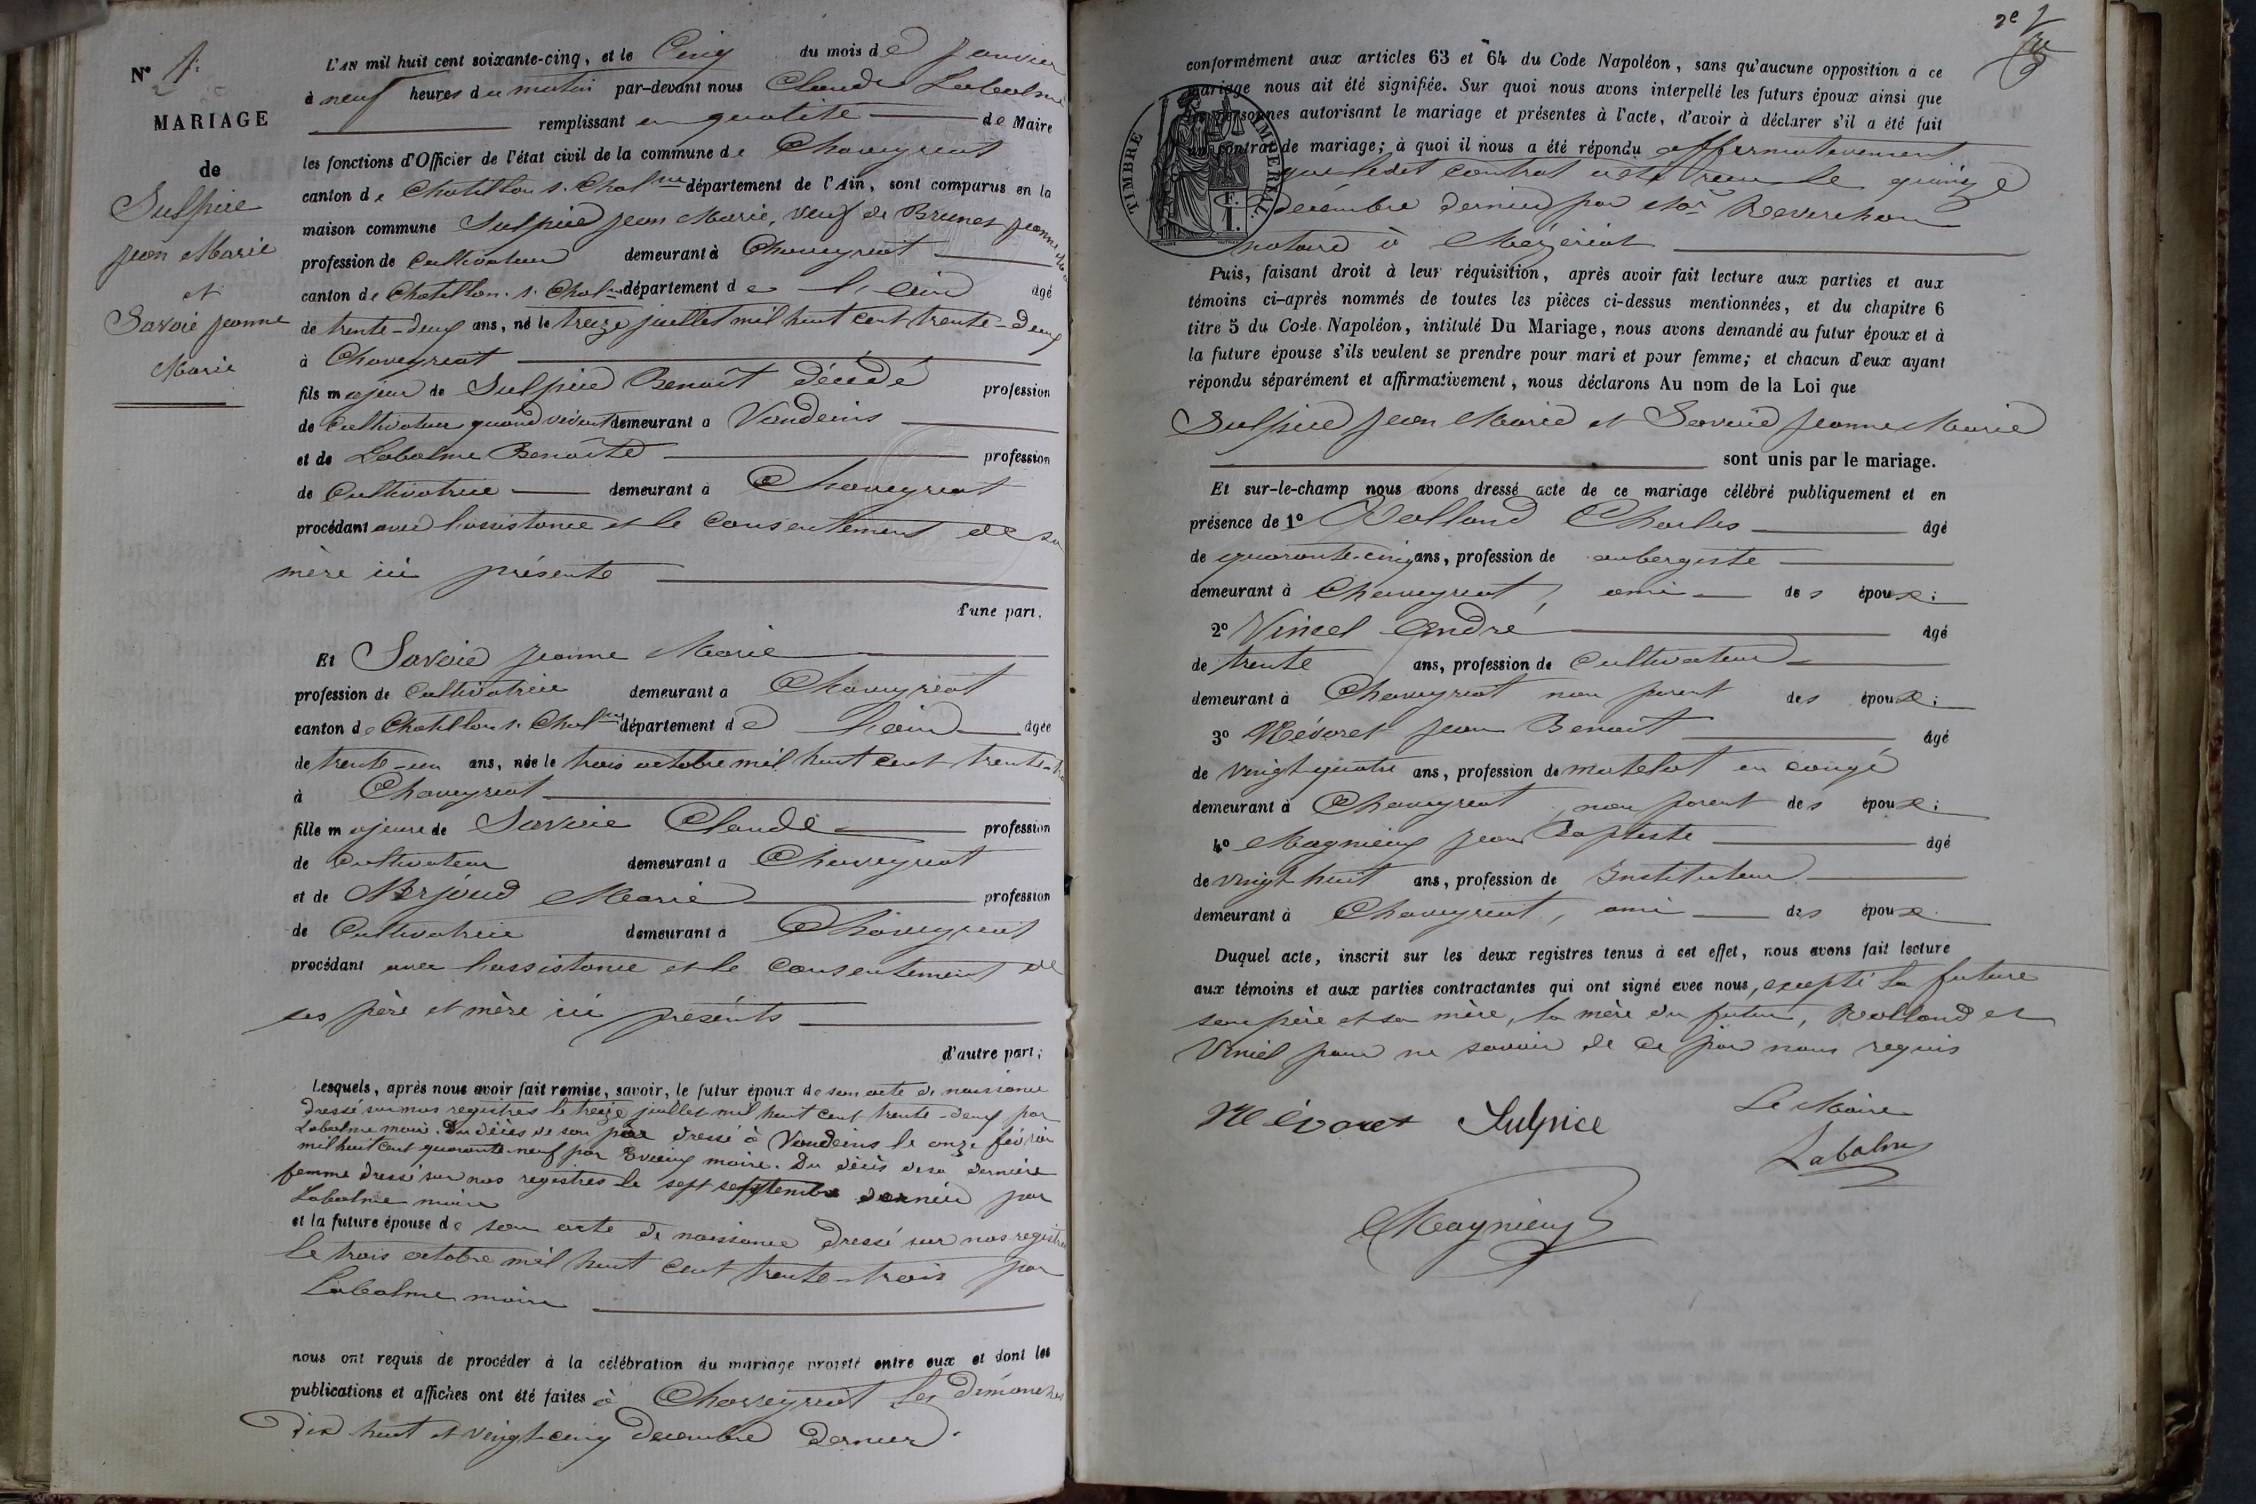 N° 1
MARIAGE
de
Sulpice
Jean Marie
et
Savoie Jeanne
Marie
L'AN mil huit cent soixante-cinq, et le Cinq du mois de Janvier
à neuf heures du matin par-devant nous Claude Labalme
remplissant en qualité de Maire
les fonctions d'Officier de l'état civil de la commune de Chaveyriat
canton de Chatillon s. Chal.ne département de l'Ain, sont comparus en la
maison commune Sulpice Jean Marie, veuf de Brunet Jeanne
profession de Cultivateur demeurant à Chaveyriat
canton de Chatillon s. Chal.ne département de l'ain âgé
de trente-deux ans, né le treize juillet mil huit cent trente-deux
à Chaveyriat
fils majeur de Sulpice Benoît décédé profession
de Cultivateur quand vivant demeurant à Vandeins
et de Labalme Benoîte profession
de Cultivatrice demeurant à Chaveyriat
procédant avec l'assistance et le consentement de sa
mère ici présente
d'une part,
Et Savoie Jeanne Marie
profession de Cultivatrice demeurant à Chaveyriat
canton de Chatillon s. Chal.ne département de l'ain âgée
de trente-un ans, née le trois octobre mil huit cent trente-
à Chaveyriat
fille majeure de Savoie Claude profession
de Cultivateur demeurant à Chaveyriat
et de Marie profession
de Cultivatrice demeurant à Chaveyriat
procédant avec l'assistance et le consentement de
ses père et mère ici présents
d'autre part;
Lesquels, après nous avoir fait remise, savoir, le futur époux de son acte de naissance
dressé sur nos registres le treize juillet mil huit cent trente-deux par
Labalme maire. Du décès de son père dressé à Vandeins le onze février
mil huit cent quarante-neuf par maire. Du décès de sa dernière
femme dressé sur nos registres le sept septembre dernier par
Labalme maire
et la future épouse de son acte de naissance dressé sur nos registres
le trois octobre mil huit cent trente-trois par
Labalme maire
nous ont requis de procéder à la célébration du mariage projeté entre eux et dont les
publications et affiches ont été faites à Chaveyriat les dimanches
dix huit et vingt-cinq décembre dernier.
2e
conformément aux articles 63 et 64 du Code Napoléon, sans qu'aucune opposition à ce
mariage nous ait été signifiée. Sur quoi nous avons interpellé les futurs époux ainsi que
les personnes autorisant le mariage et présentes à l'acte, d'avoir à déclarer s'il a été fait
contrat de mariage; à quoi il nous a été répondu affirmativement
que ledit contrat a été reçu le quinze
décembre dernier par Me Reverchon
notaire à Mézériat
TIMBRE IMPÉRIAL
Puis, faisant droit à leur réquisition, après avoir fait lecture aux parties et aux
témoins ci-après nommés de toutes les pièces ci-dessus mentionnées, et du chapitre 6
titre 5 du Code Napoléon, intitulé Du Mariage, nous avons demandé au futur époux et à
la future épouse s'ils veulent se prendre pour mari et pour femme; et chacun d'eux ayant
répondu séparément et affirmativement, nous déclarons Au nom de la Loi que
Sulpice Jean Marie et Savoie Jeanne Marie
sont unis par le mariage.
Et sur-le-champ nous avons dressé acte de ce mariage célébré publiquement et en
présence de 1° Rolland Charles âgé
de quarante-cinq ans, profession de aubergiste
demeurant à Chaveyriat, ami des époux;
2° Viniel André âgé
de trente ans, profession de Cultivateur
demeurant à Chaveyriat non parent des époux;
3° Névoret Jean Benoît âgé
de vingt quatre ans, profession de matelot en congé
demeurant à Chaveyriat, non parent des époux;
4° Magnieux Jean Baptiste âgé
de vingt huit ans, profession de Instituteur
demeurant à Chaveyriat, ami des époux.
Duquel acte, inscrit sur les deux registres tenus à cet effet, nous avons fait lecture
aux témoins et aux parties contractantes qui ont signé avec nous, excepté la future
son père et sa mère, la mère du futur, Rolland et
Viniel pour ne savoir de ce par nous requis
Névoret Sulpice Le Maire
Labalme
Magnieux